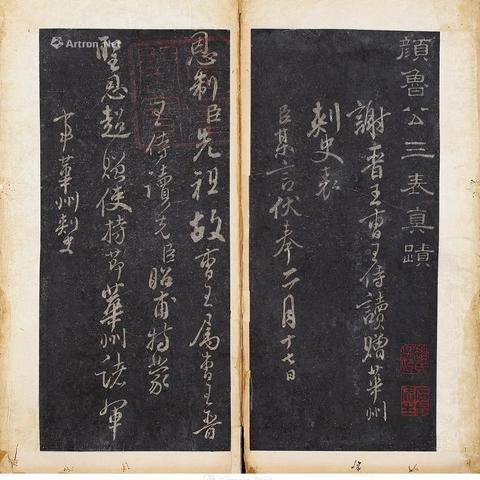 顏魯公三表真蹟
謝晉王曹王侍讀贈華州
刺史表
臣某言伏奉二月十七日
恩制臣先祖故曹王屬曹王晉
王侍讀先臣昭甫特蒙
聖恩超贈使持節華州諸軍
事華州刺史
Artron.Net